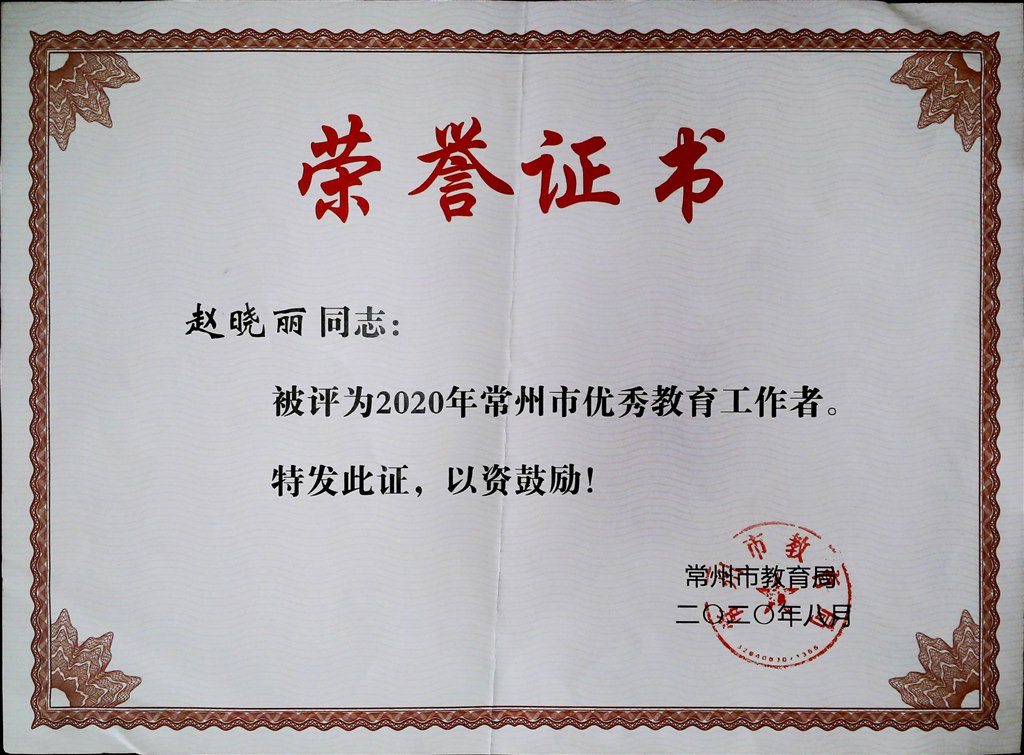 荣誉证书
赵晓丽 同志：
被评为2020年常州市优秀教育工作者。
特发此证，以资鼓励！
常州市教育局
二〇二〇年八月